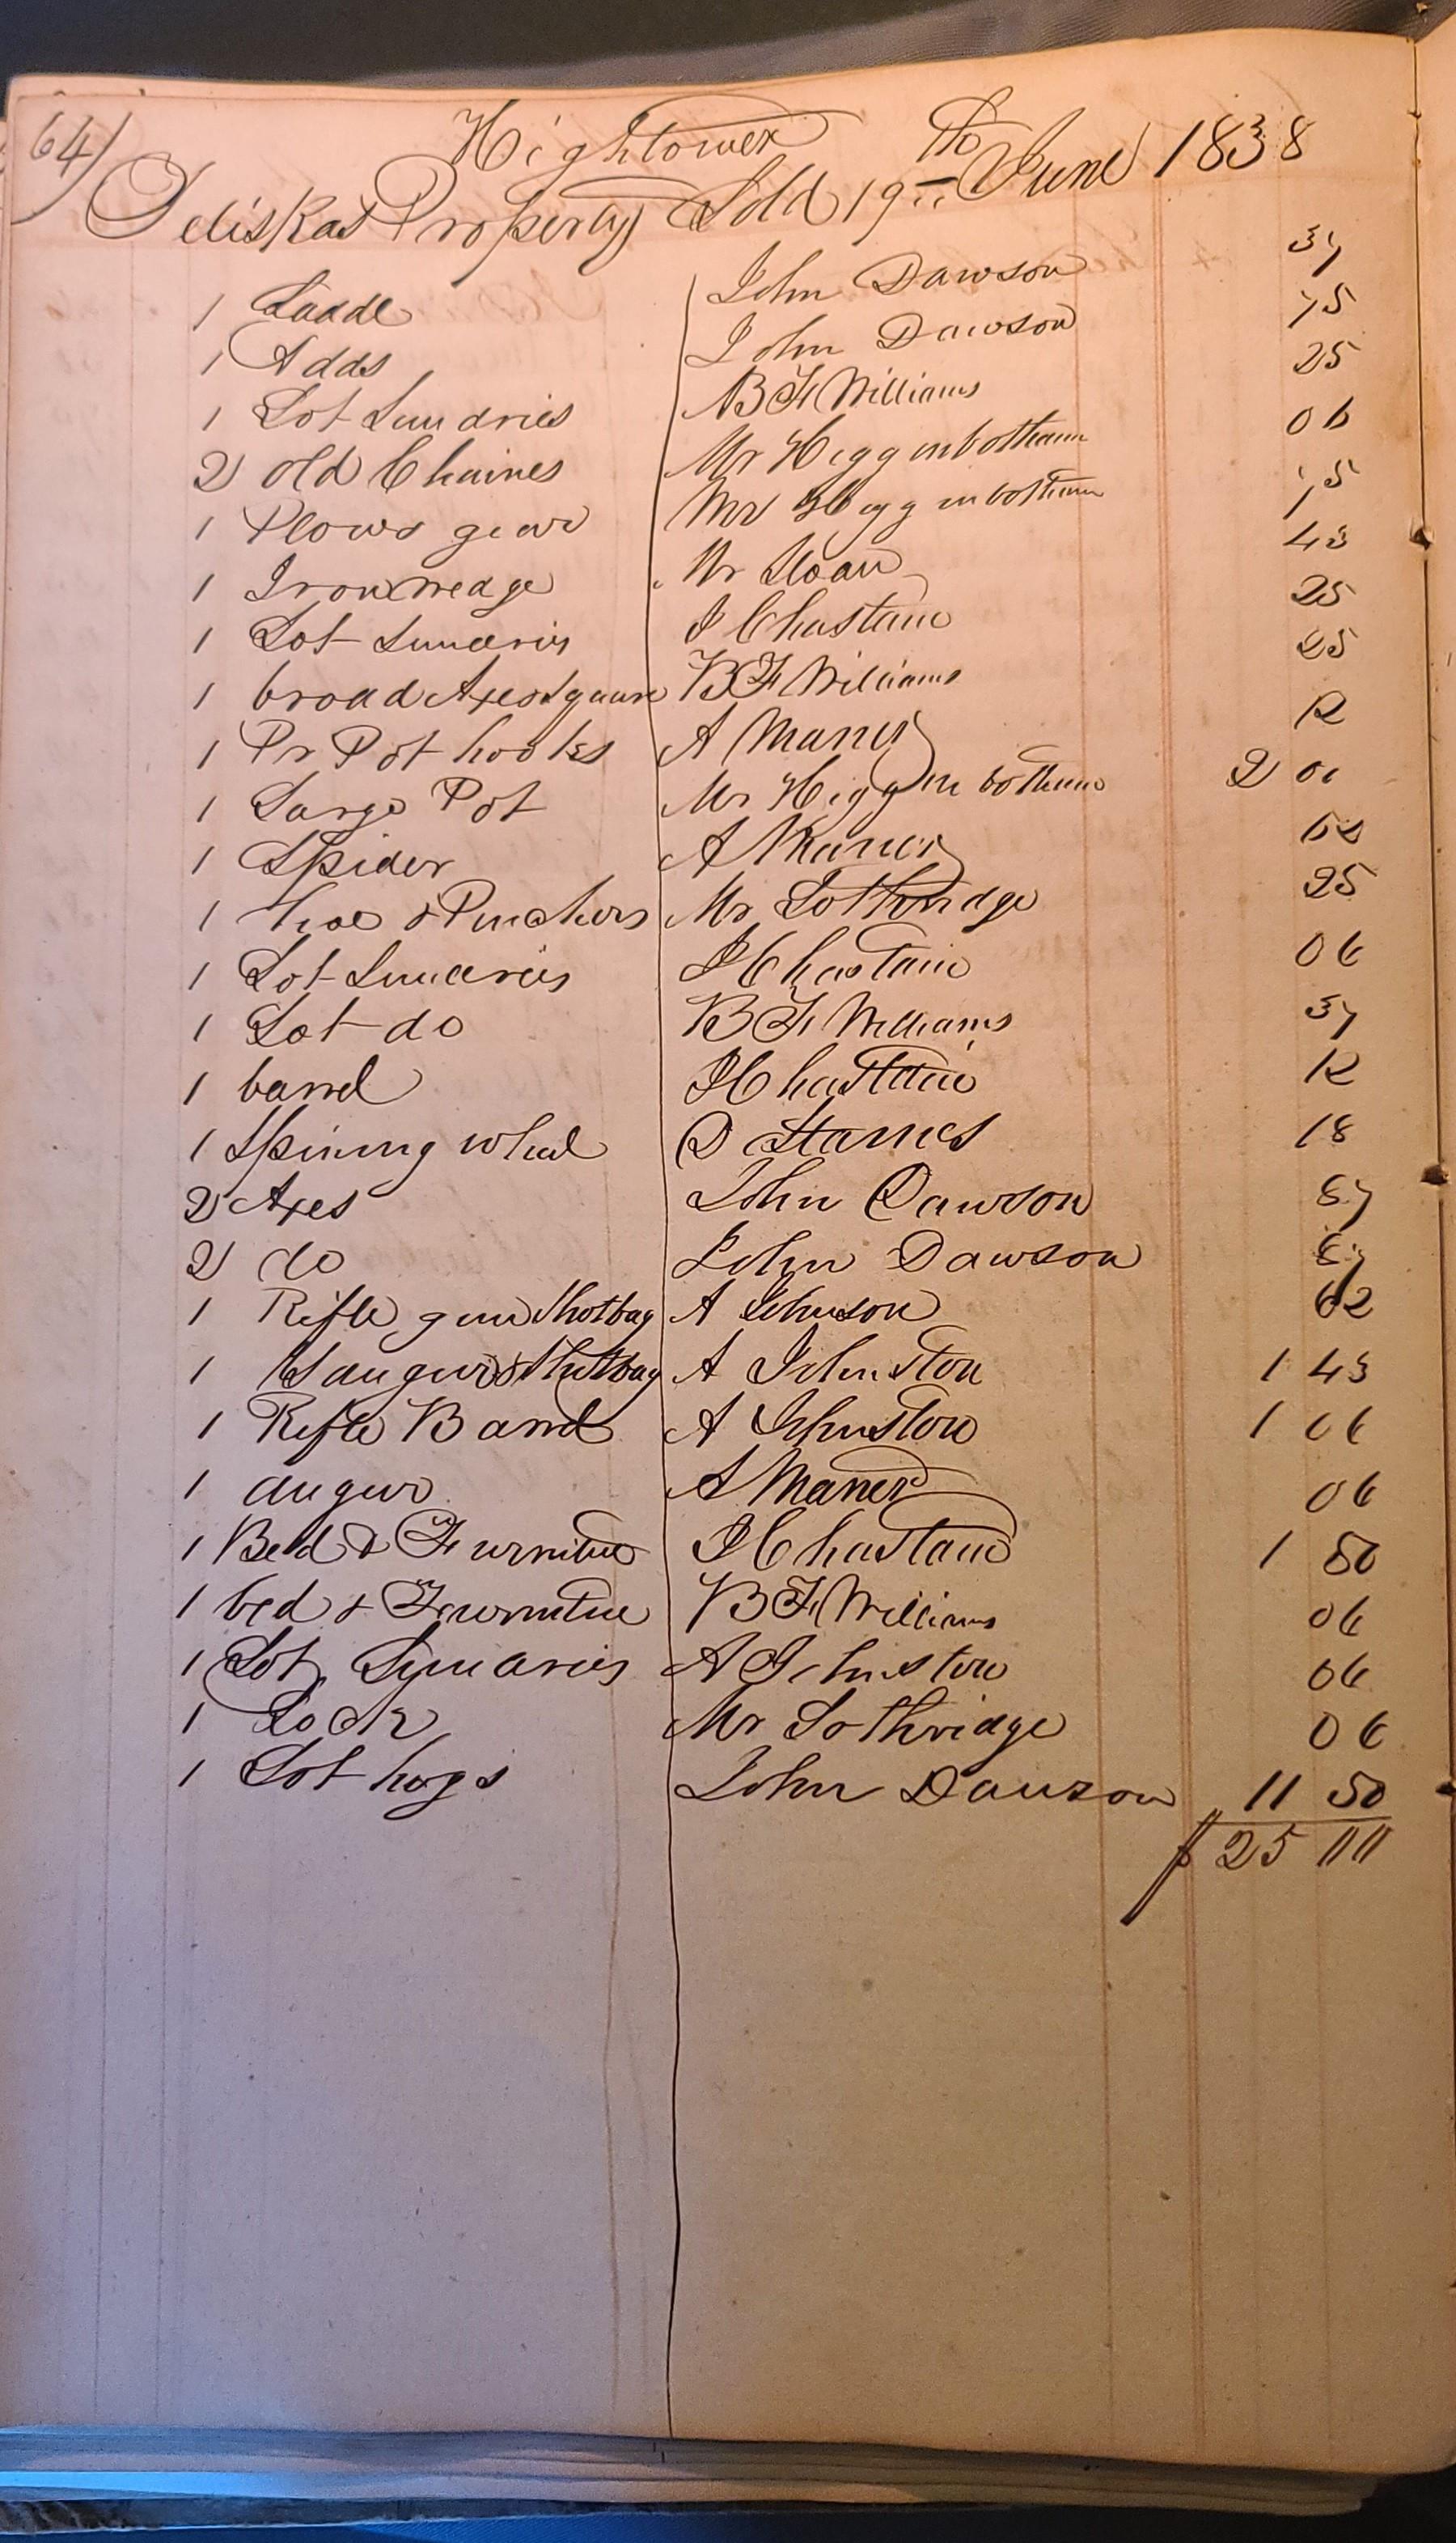 64)
Hightower
Teliskas Property Sold 19th June 1838
1 Saddle John Dawson 37
1 Adds John Dawson 75
1 Lot Sundries B F Williams 25
2 old Chaines Mr Higginbotham 06
1 Plows gear Mr Higginbotham 75
1 Iron wedge Mr Sloan 43
1 Lot Sundries J Chastain 25
1 broad Axe & Square B F Williams 25
1 Pr Pot hooks A Maner 12
1 Large Pot Mr Higginbotham 2 00
1 Spider A Maner 62
1 hoe & Pinchers Mr Lothridge 25
1 Lot Sundries J Chastain 06
1 Lot do B F Williams 37
1 barrel J Chastain 12
1 Spining wheel D Starnes 18
2 Axes John Dawson 87
2 do John Dawson
1 Rifle gun Shotbag A Johnson 62
1 & Shotbag A Johnston 1 43
1 Rifle Barrel A Johnston 1 06
1 auguer A Maner 06
1 Bed & Furniture J Chastain 1 50
1 bed & Furniture B F Williams 06
1 Lot Sundries A Johnston 06
1 Lock Mr Lothridge 06
1 Lot hogs John Dawson 11 50
$ 25 11